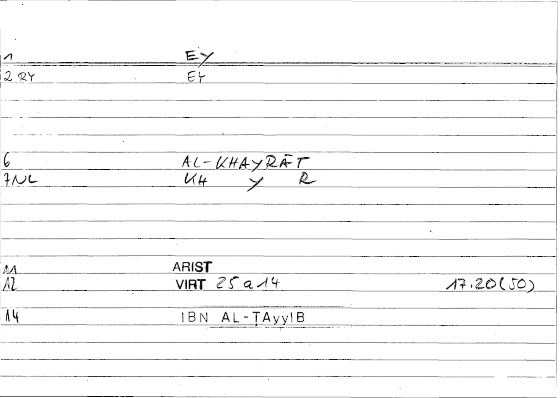 1 EY
2 RY EY
6 AL-KHAYRĀT
7NL KH Y R
11 ARIST
12 VIRT 25 a 14 17.20 (50)
14 IBN AL-ṬAyyIB